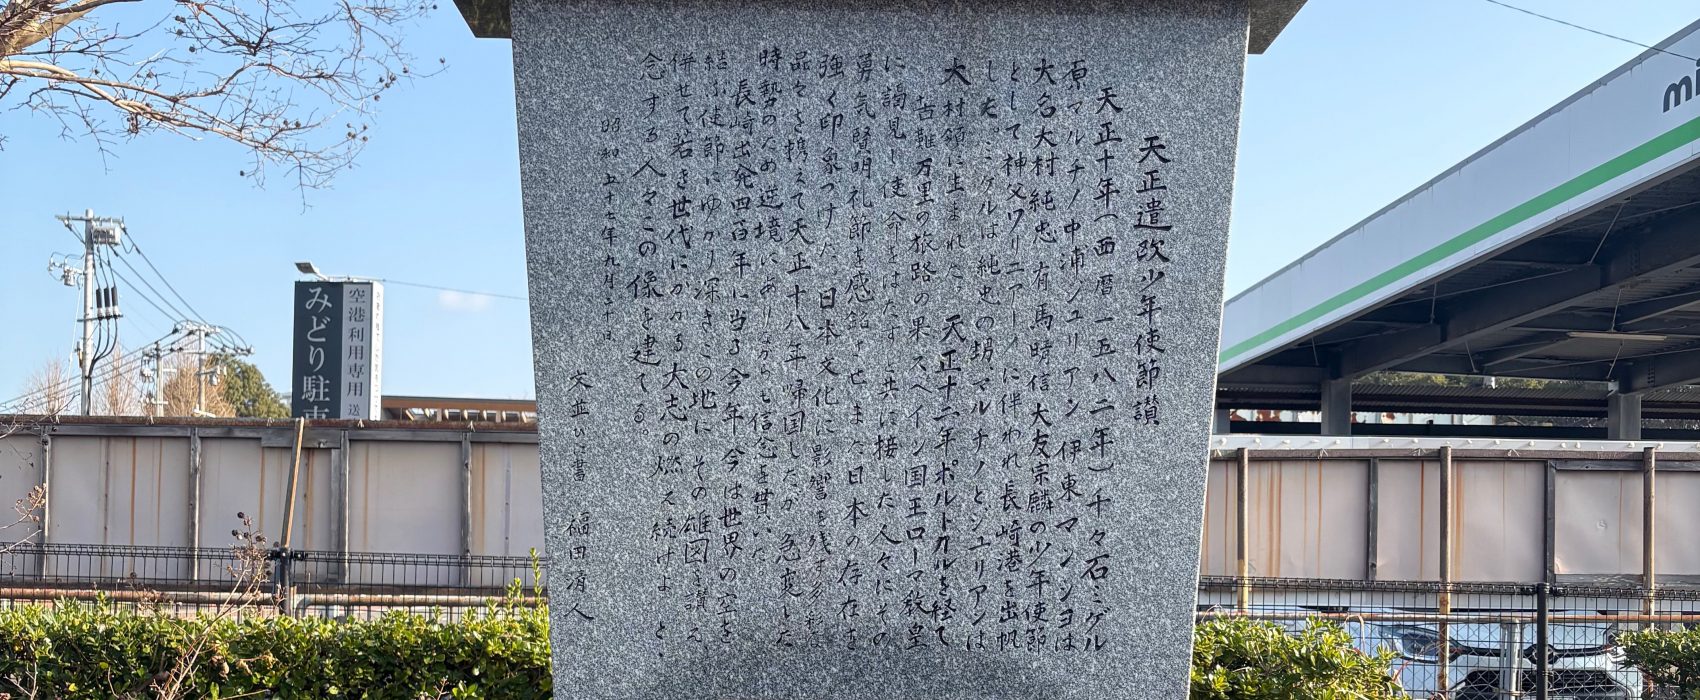 天正遣欧少年使節讃
天正十年(西暦一五八二年)千々石ミゲル
原マルチノ 中浦ジュリアン 伊東マンショは
大名大村純忠 有馬晴信 大友宗麟の少年使節
として神父ワリニアーノに伴われ長崎港を出帆
した。ミゲルは純忠の甥、マルチノとジュリアンは
大村領に生まれた。 天正十二年ポルトガルを経て
苦難万里の旅路の果スペイン国王ローマ教皇
に謁見し使命をはたすと共に接した人々にその
勇気賢明礼節を感銘させまた日本の存在を
強く印象づけた、日本文化に影響を残す
品々を携えて天正十八年帰国したが 急変した
時勢のため逆境にありながらも信念を貫いた
長崎出発四百年に当る今年、今は世界の空を
結ぶ使節にゆかり深きこの地に その雄図を讃え
併せて若き世代にかかる大志の燃え続けよ と、
念ずる人々この像を建てる。
昭和五十七年九月二十日
文並び書 福田清人
みどり駐車
空港利用専用 送
mi